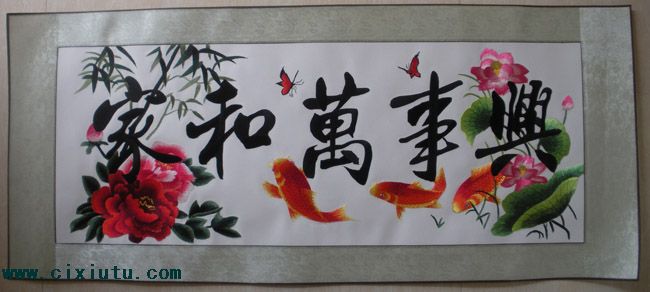 家和萬事興
www.cixiutu.com